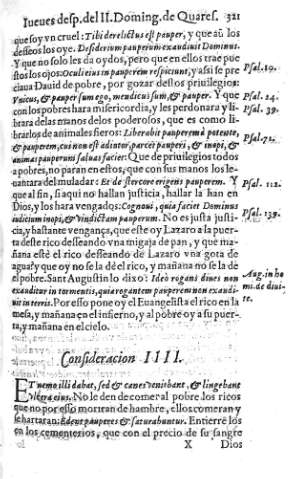 Iueues desp. del II. Doming. de Quares. 321
que soy vn cruel: Tibi derelictus est pauper, y que aũ los
desseos los oye. Desiderium pauperum exaudiuit Dominus.
Y que no solo les da oydos, pero que en ellos trae pue
stos los ojos: Oculi eius in pauperem respiciunt, y assi se pre
ciaua Dauid de pobre, por gozar destos priuilegios:
Vnicus, & pauper sum ego, mendicus sum, & pauper. Y que
con los pobres hara misericordia, y les perdonara y li
brara de las manos de los poderosos, que es como li
brarlos de animales fieros: Liberabit pauperem à potente,
& pauperem, cui non est adiutor, parcet pauperi, & inopi, &
animas pauperum saluas faciet: Que de priuilegios todos
a pobres, no paran en estos, que con sus manos los le-
uantara del muladar: Et de stercore erigens pauperem. Y
que al fin, si aqui no hallan justicia, hallar la han en
Dios, y los hara vengados: Cognoui, quia faciet Dominus
iudicium inopis, & vindictam pauperum. No es justa justi-
cia, y bastante vengança, que este oy Lazaro a la puer-
ta deste rico desseando vna migaja de pan, y que ma-
ñana estè el rico desseando de Lazaro vna gota de
agua? y que oy no se la dè el rico, y mañana no se la dè
el pobre. Sant Augustin lo dixo: Ideò rogans diues non
exauditur in tormentis, quia rogantem pauperem non exaudi-
uit in terris. Por esso pone oy el Euangelista el rico en la
mesa, y mañana en el infierno, y al pobre oy a su puer-
ta, y mañana en el cielo.
Psal. 19.
Psal. 24.
Psal. 39.
Psal. 71.
Psal. 112.
Psal. 139.
Aug. in ho
mi. de diui-
te.
Consideracion IIII.
ET nemo illi dabat, sed & canes venibant, & lingebant
vlcera eius. No le den de comer al pobre los ricos
que no por esso moriran de hambre, ellos comeran y
se hartaran: Edent pauperes & saturabuntur. Entierrè los
en los cementerios, que con el precio de su sangre
X Dios